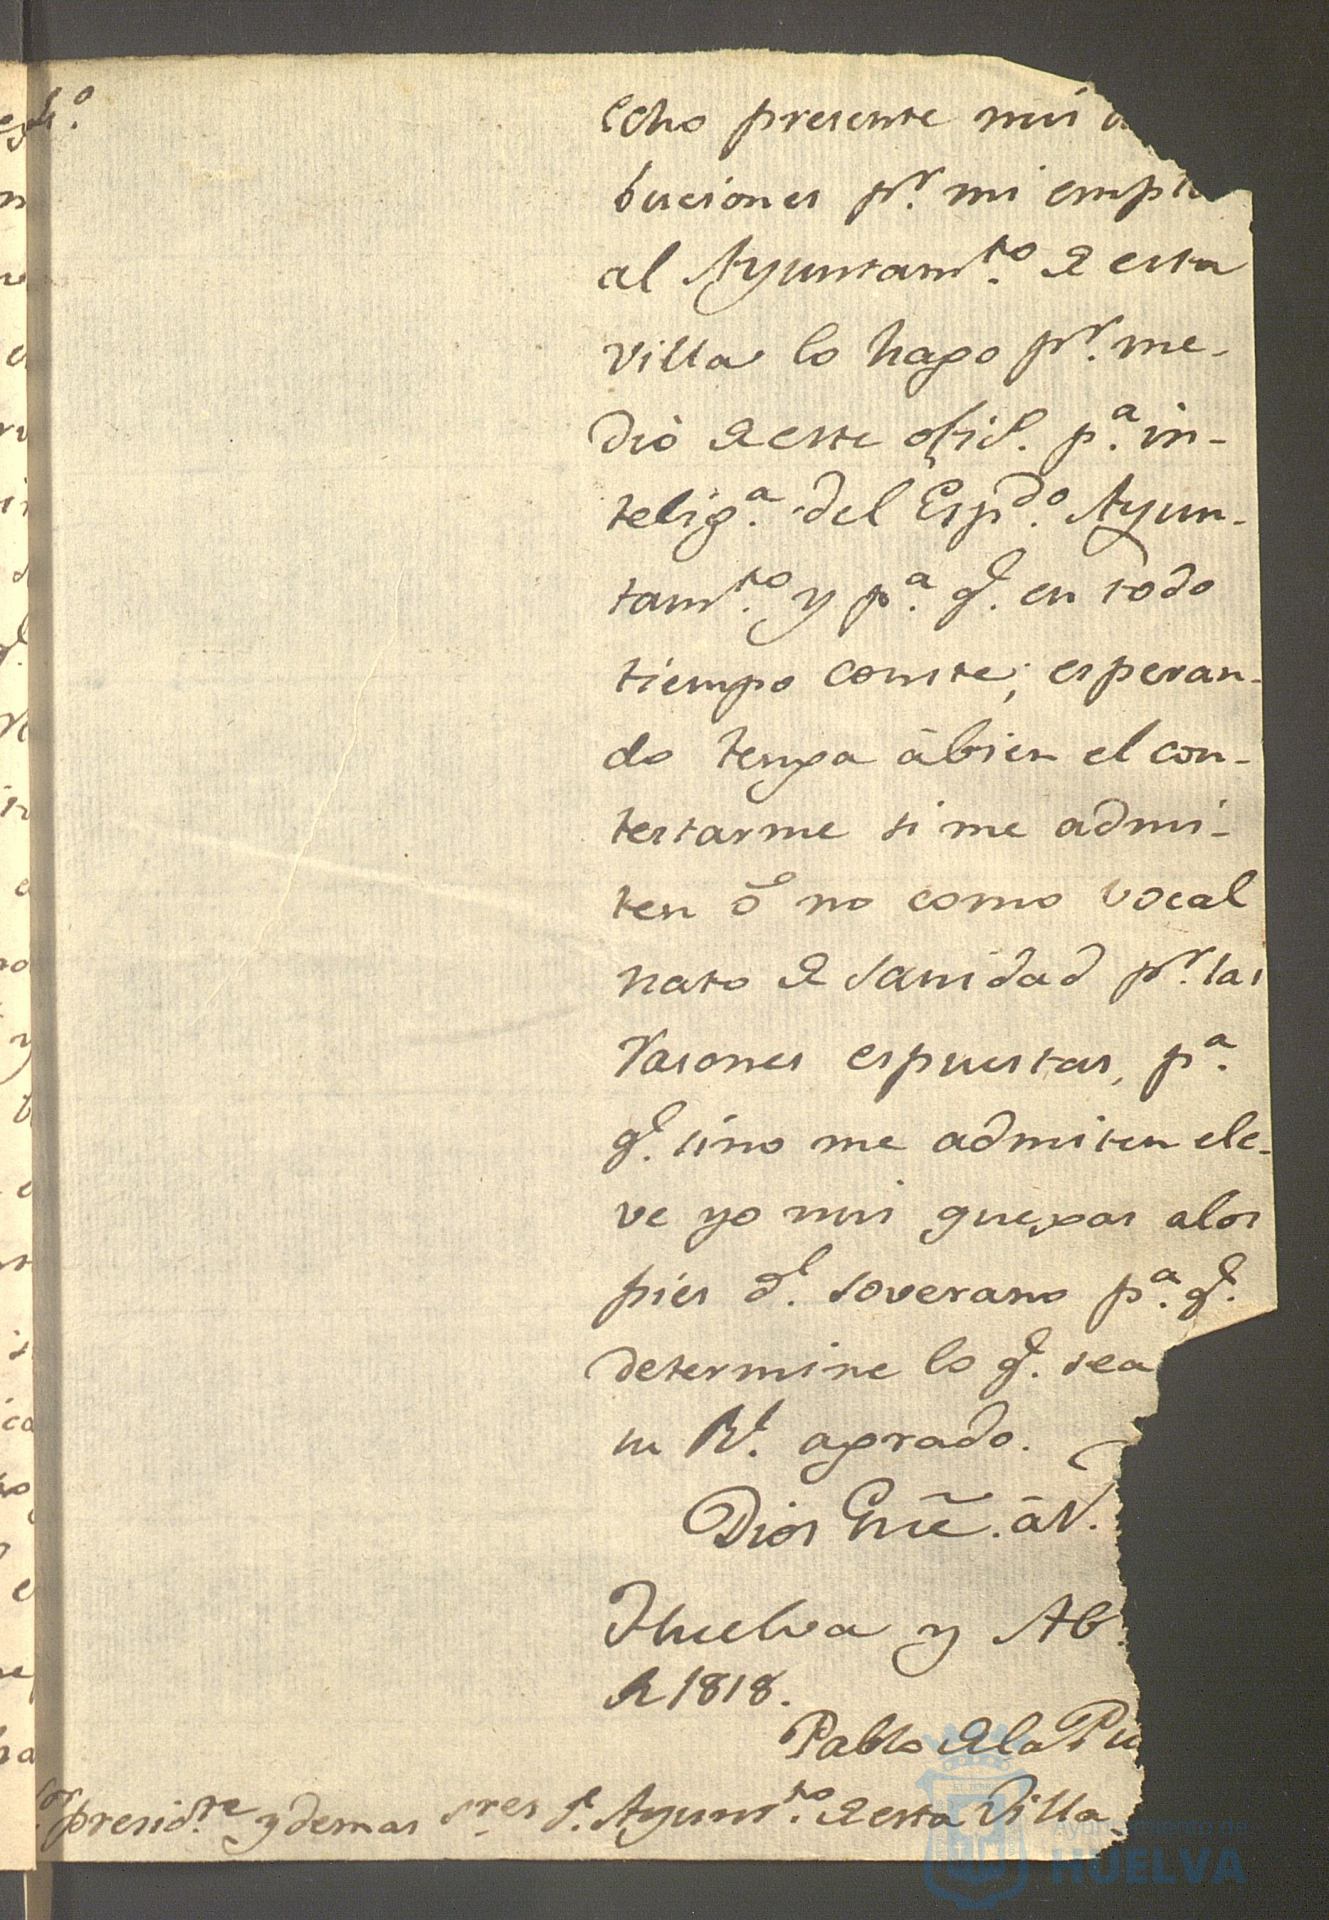 Echo presente mis
buciones pr. mi
al Ayuntamto. de esta
villa lo hago pr. me-
dio de este ofiº. pa. in-
telig.a del Espdo. Ayun-
tamto. y pa. q.e en todo
tiempo conste; esperan-
do tenga àbien el con-
testarme si me admi-
ten ó no como vocal
nato de sanidad pr. las
rasones espuestas, pa.
q.e sino me admiten ele-
ve yo mis quexas alos
pies d.l soverano pa. q.e
determine lo q.e sea
su Rl. agrado.
Dios Gue. àV.
Huelva y Ab
de 1818.
Pablo de la
Sor. presidte. y demas Sres. d.e Ayunto. de esta Villa.
Ayuntamiento de
HUELVA